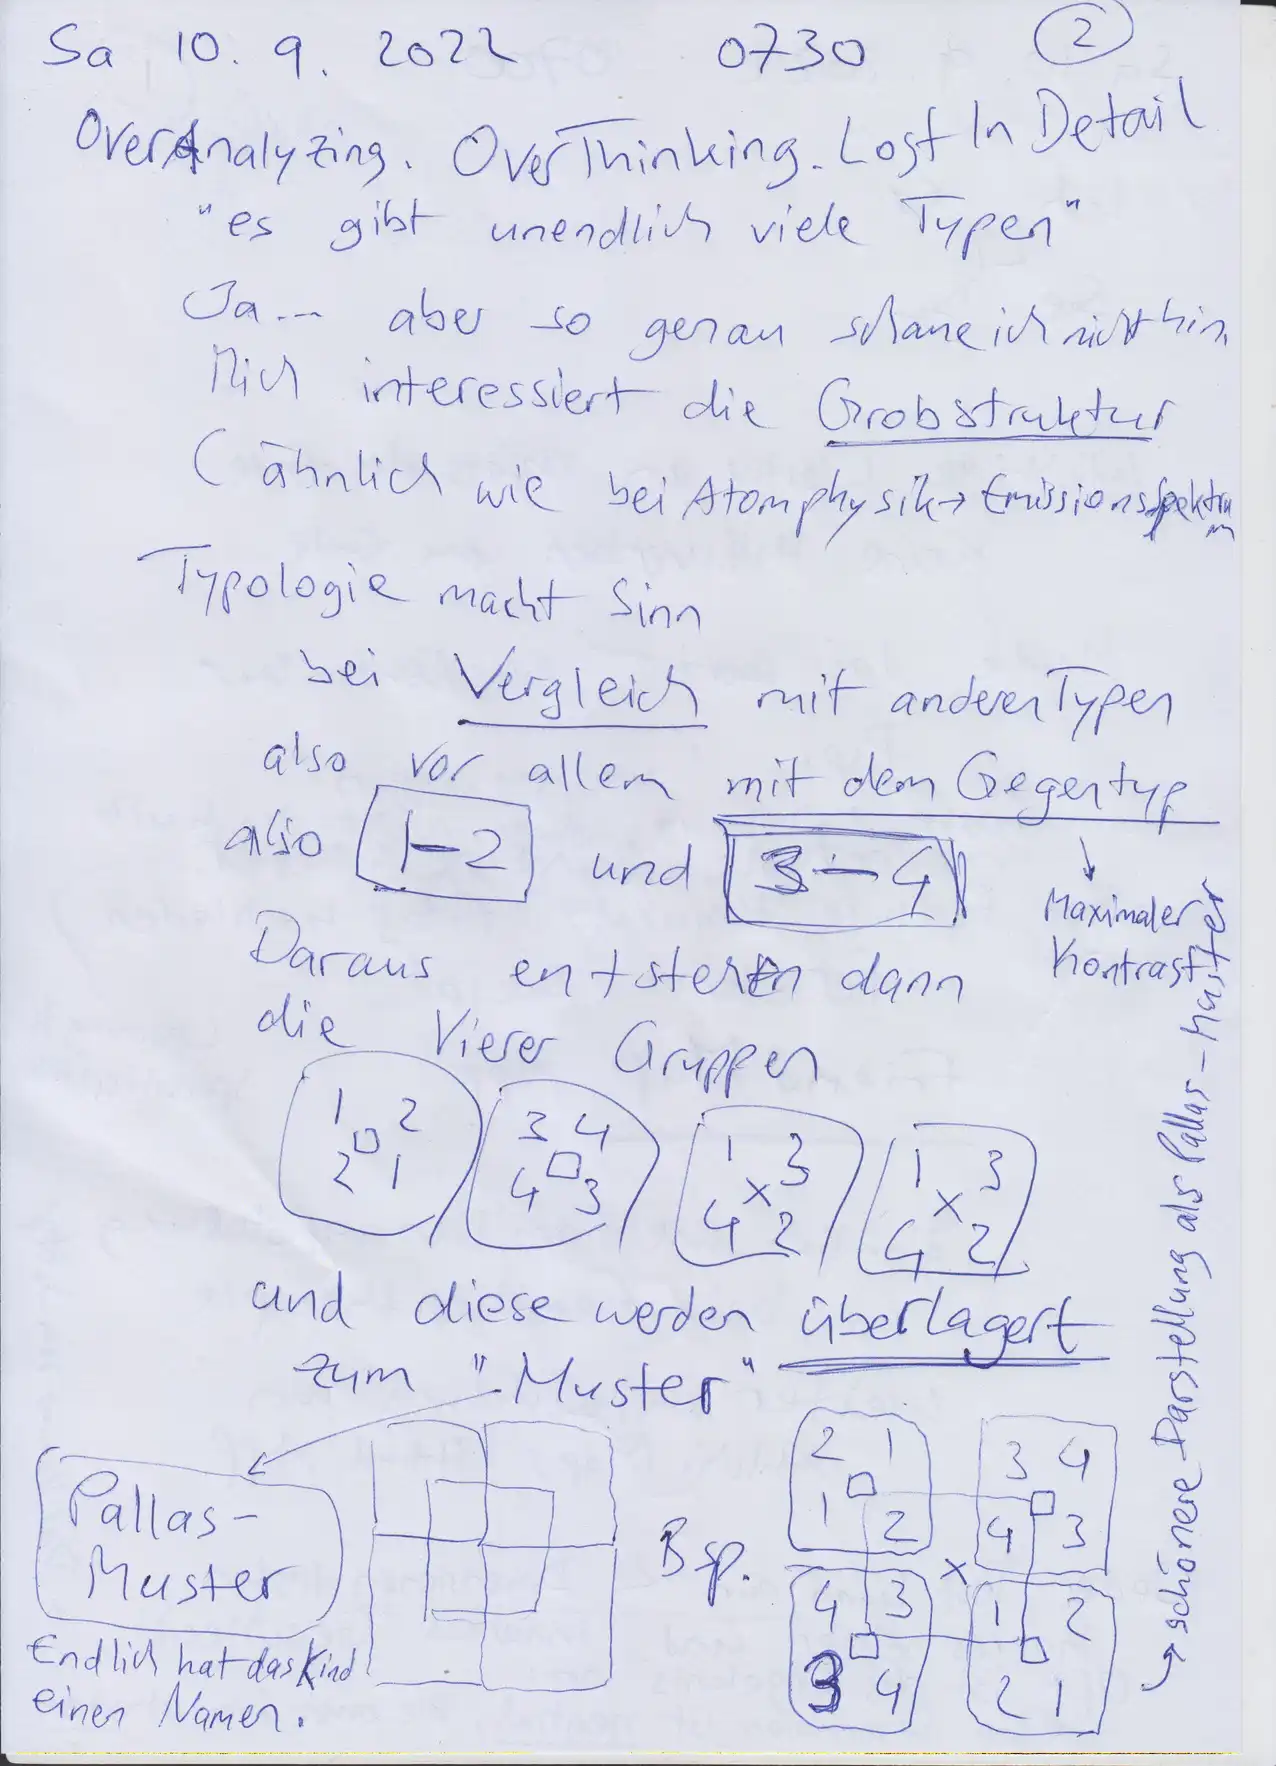 Sa 10. 9. 2022 0730 2
OverAnalyzing. OverThinking. Lost In Detail
"es gibt unendlich viele Typen"
Ja... aber so genau schaue ich nicht hin.
Mich interessiert die Grobstruktur
(ähnlich wie bei Atomphysik → Emissionsspektrum
Typologie macht Sinn
bei Vergleich mit anderen Typen
also vor allem mit dem Gegentyp
also 1-2 und 3-4
Maximaler
Kontrast
Daraus entstehen dann
die Vierer Gruppen
1 2 3 4 1 3 1 3
2 1 4 3 4 x 2 4 x 2
und diese werden überlagert
zum "Muster"
Pallas-
Muster
Endlich hat das Kind
einen Namen.
Bsp.
2 1 3 4
1 2 4 3
x
4 3 1 2
3 4 2 1
→ schönere Darstellung als Pallas-Muster